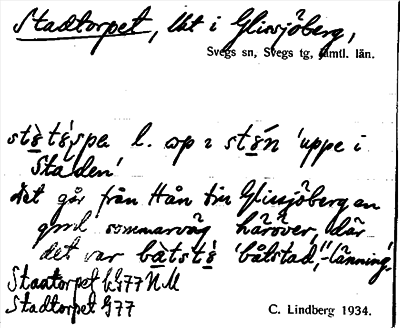 Stadtorpet, lht i Glissjöberg,
Svegs sn, Svegs tg, Jämtl. län.
l. op 'uppe i
Staden'
Det går från Hån till Glissjöberg en
gml sommarväg häröver, där
det var 'båtstad, -länning'.
Stadtorpet G77 N M
Stadtorpet G77
C. Lindberg 1934.